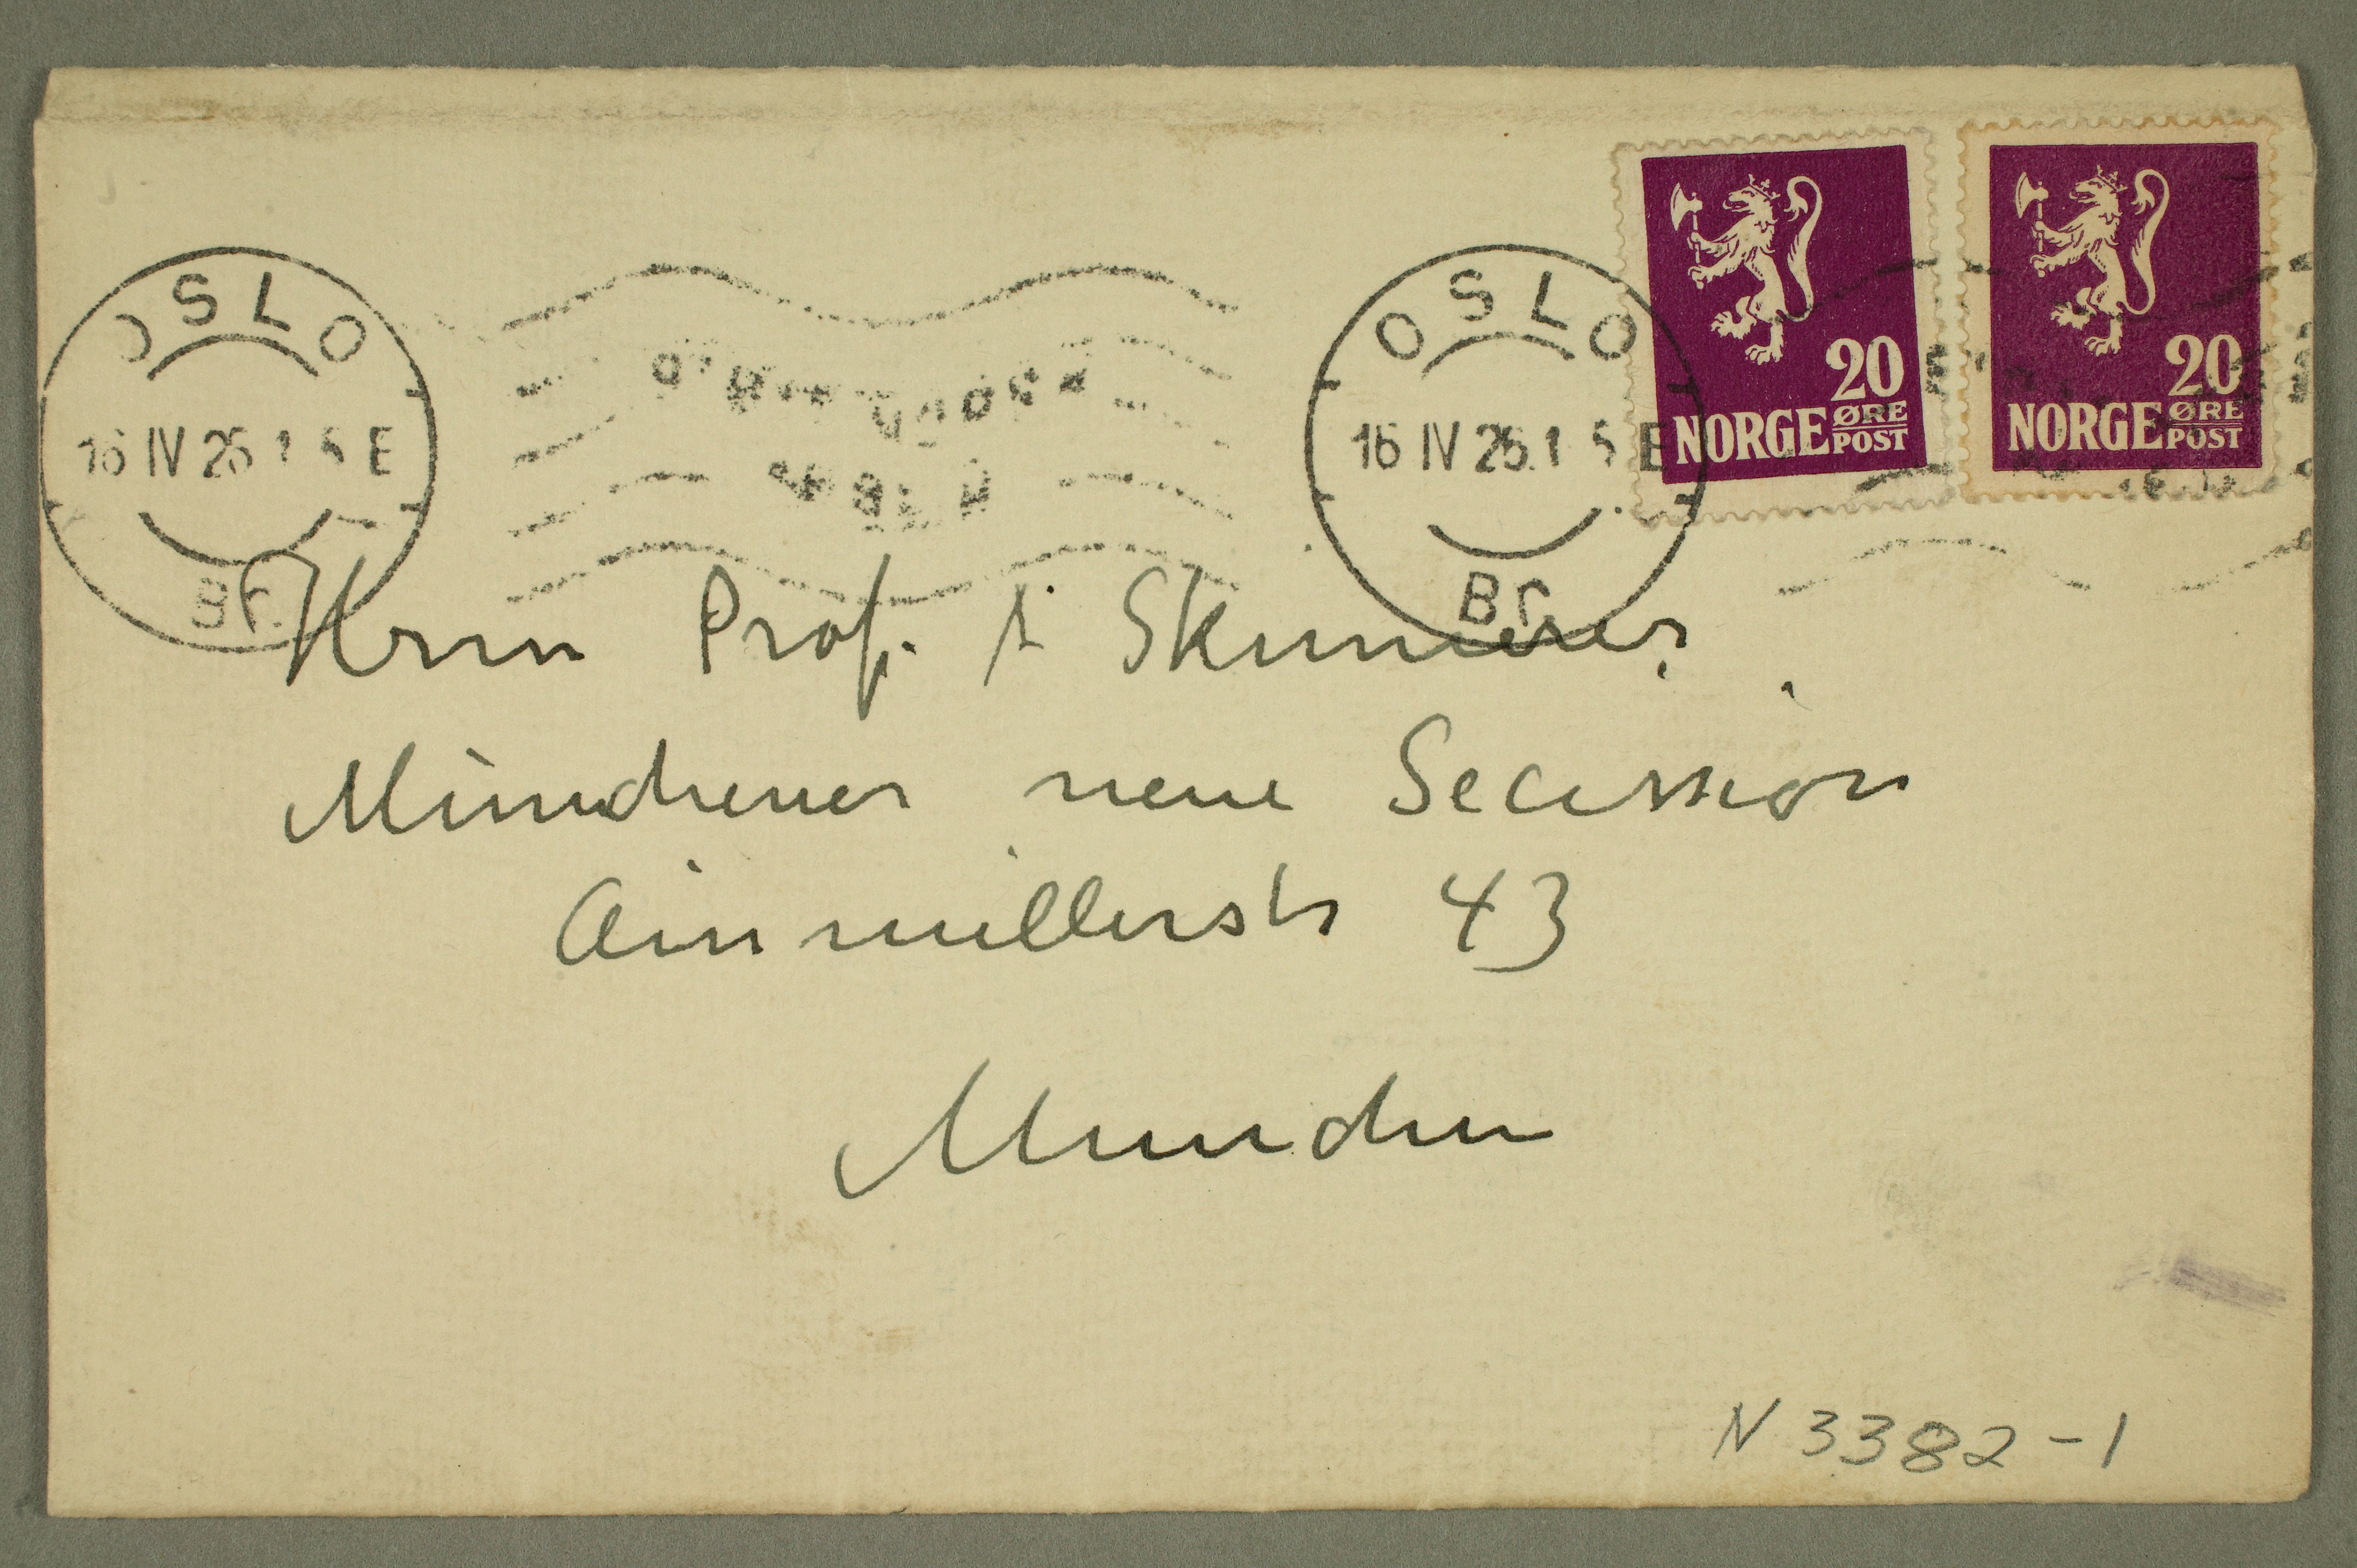 OSLO
16 IV 26 1 5 E
Br.
OSLO
16 IV 26. 1 5 E
Br.
20
NORGE ØRE POST
20
NORGE ØRE POST
Herrn Prof.
Münchener neue Secession
Ainmillerstr 43
Munchen
N 3382-1